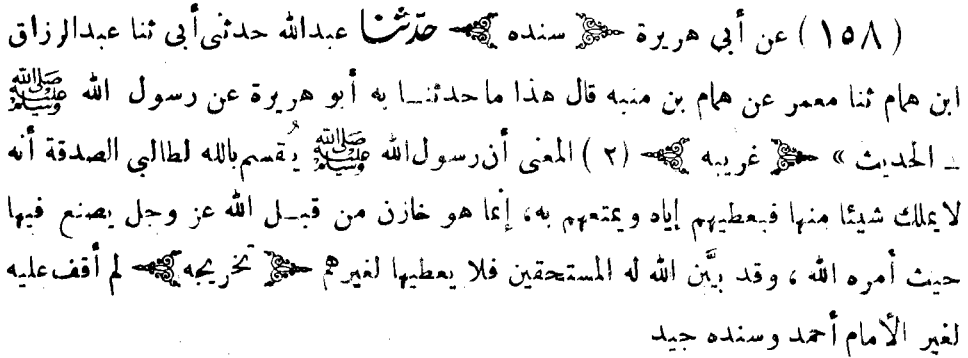 (١٥٨) عن أبى هريرة ﴿ سنده ﴾ حدّثنا عبدالله حدثنى أبى ثنا عبدالرزاق
ابن همام ثنا معمر عن همام بن منبه قال هذا ما حدثنا به أبو هريرة عن رسول الله ﷺ
ـ الحديث » ﴿ غريبه ﴾ (٢) المعنى أن رسول الله ﷺ يُقسم بالله لطالبي الصدقة أنه
لا يملك شيئا منها فيعطيهم إياه ويمتعهم به، إنما هو خازن من قبل الله عز وجل يصنع فيها
حيث أمره الله ، وقد بيَّن الله له المستحقين فلا يعطيها لغيرهم ﴿ تخريجه ﴾ لم أقف عليه
لغير الأمام أحمد وسنده جيد